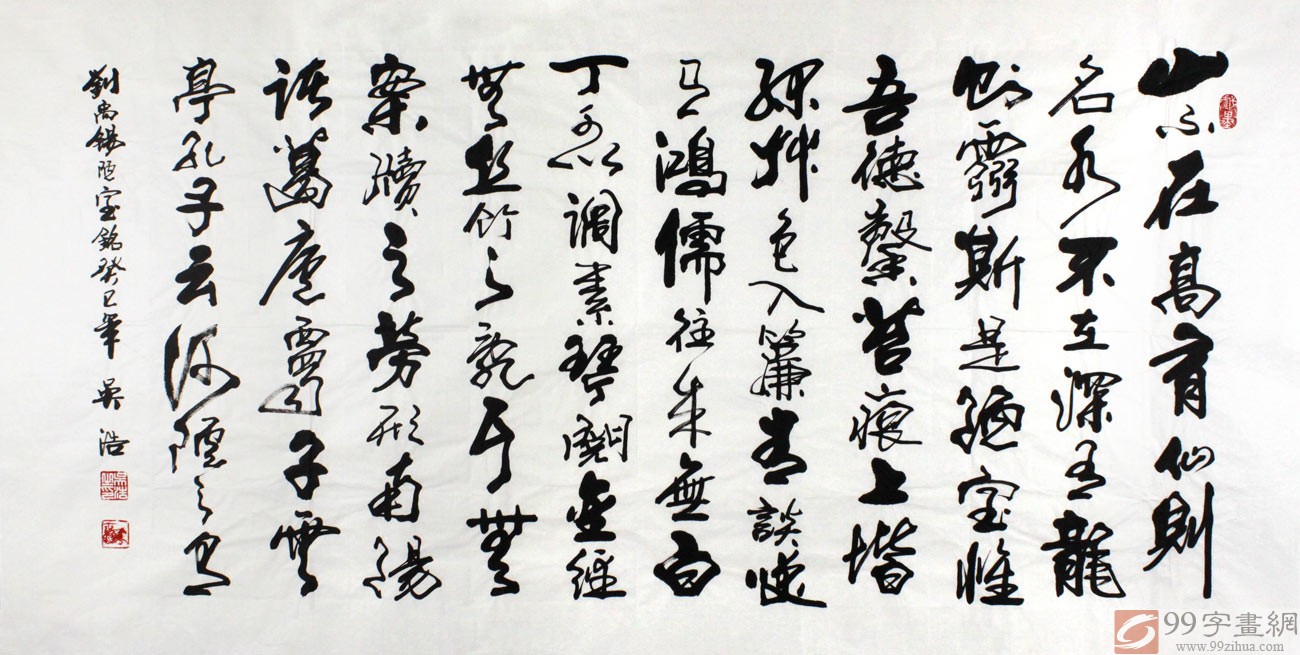 山不在高有仙則
名水不在深有龍
則靈斯是陋室惟
吾德馨苔痕上堦
綠艸色入簾青談咲
有鴻儒往來無白
丁可以調素琴閱金經
無絲竹之亂耳無
案牘之勞形南陽
諸葛廬西蜀子雲
亭孔子云何陋之有
劉禹錫陋室銘癸巳年 吳浩
99字畫網
www.99zihua.com